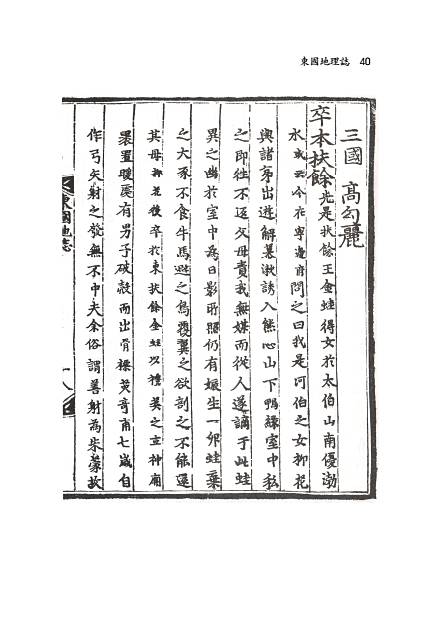 東國地理誌 40
三國 高句麗
卒本扶餘先是扶餘王金蛙得女於太伯山南優渤
水或云今在寧邊府問之曰我是河伯之女柳花
與諸弟出遊解慕漱誘入熊心山下鴨綠室中私
之即往不返父母責我無媒而從人遂謫于此蛙
異之幽於室中爲日影所照仍有娠生一卵蛙棄
之犬豕不食牛馬避之鳥覆翼之欲剖之不能還
其母柳花後卒於東扶餘金蛙以禮葬之立神廟
裹置暖處有男子破殼而出骨標英奇甫七歲自
作弓矢射之發無不中夫余俗謂善射爲朱蒙故
東國地誌
十八